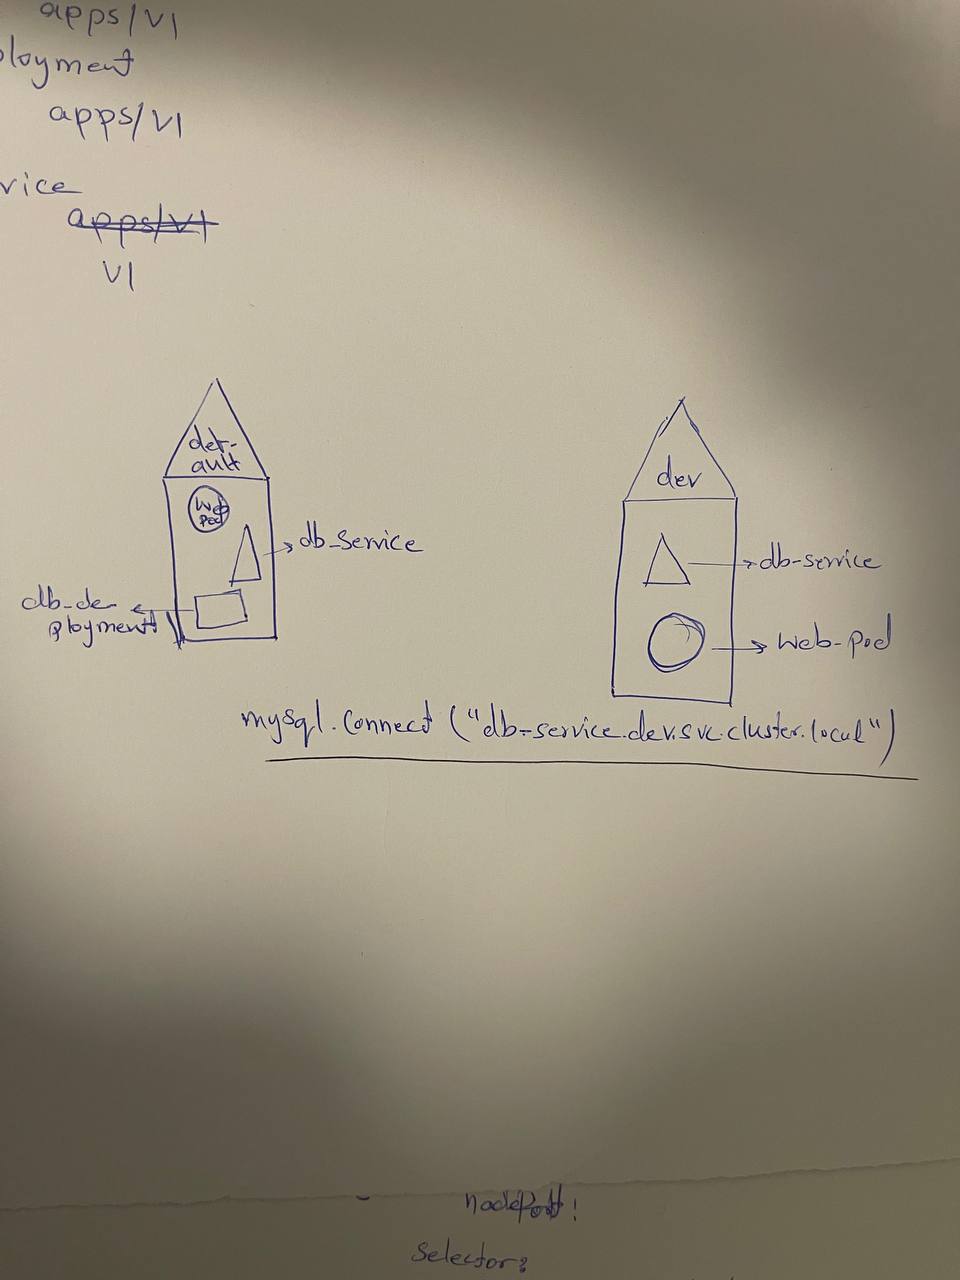 apps/v1
ployment
apps/v1
rvice
apps/v1
v1
def-
ault
Web
Pod
db-service
db-de
ployment
dev
db-service
web-pod
mysql.connect ("db-service.dev.svc.cluster.local")
nodePort:
selector: